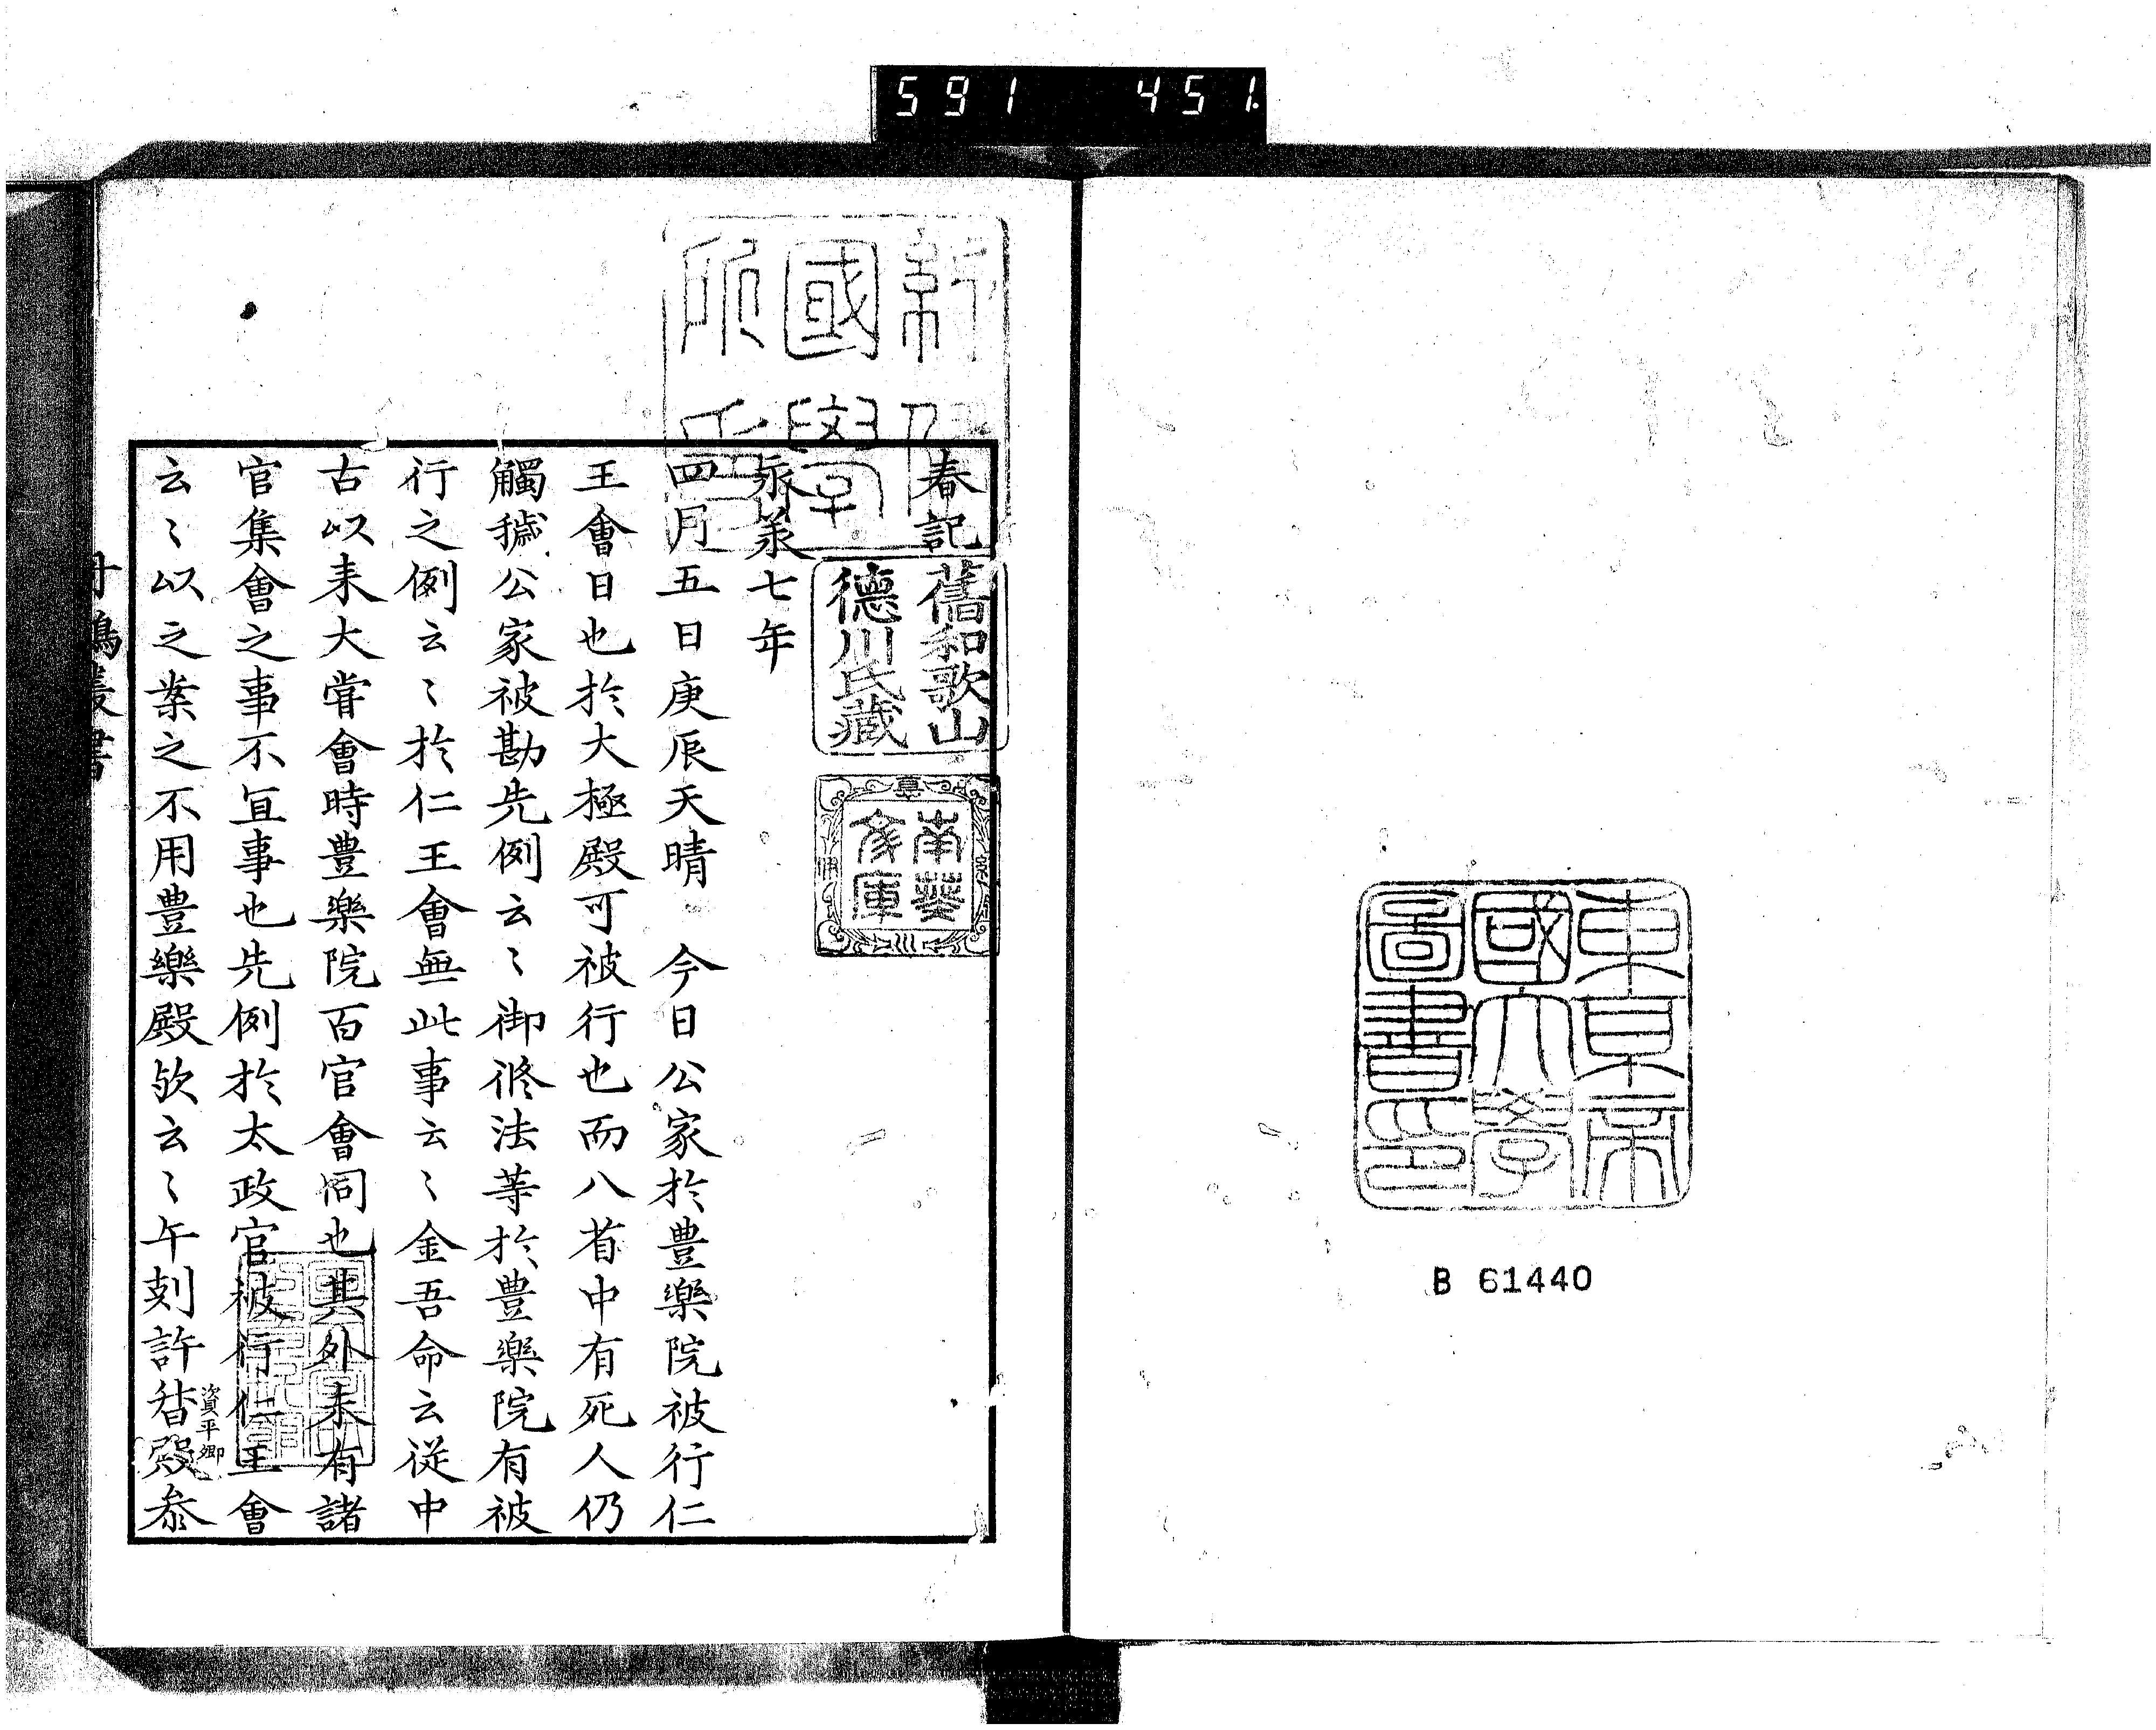 591 451
東京帝
國大學
圖書印
B 61440
春記
舊和歌山
德川氏藏
南葵
文庫
永承七年
四月五日庚辰天晴 今日公家於豊樂院被行仁
王會日也於大極殿可被行也而八省中有死人仍
觸穢公家被勘先例云〻御修法等於豊樂院有被
行之例云〻於仁王會無此事云〻金吾命云従中
古以来大甞會時豊樂院百官會同也其外未有諸
官集會之事不宜事也先例於太政官被行仁王會
云〻以之案之不用豊樂殿欤云〻午剋許督殿参
資平卿
丹鶴叢書